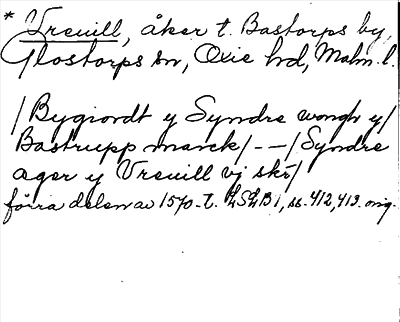 * Vreuill, åker t. Bastorps by,
Glostorps sn, Oxie hd, Malm. l.
/Bygiordt y Syndre wongh y/
Bastrupp marck/ - - /Syndre
ager y Vreuill vj skr/
förra delen av 1570-t. LSLB 1, ss. 412, 413. orig.